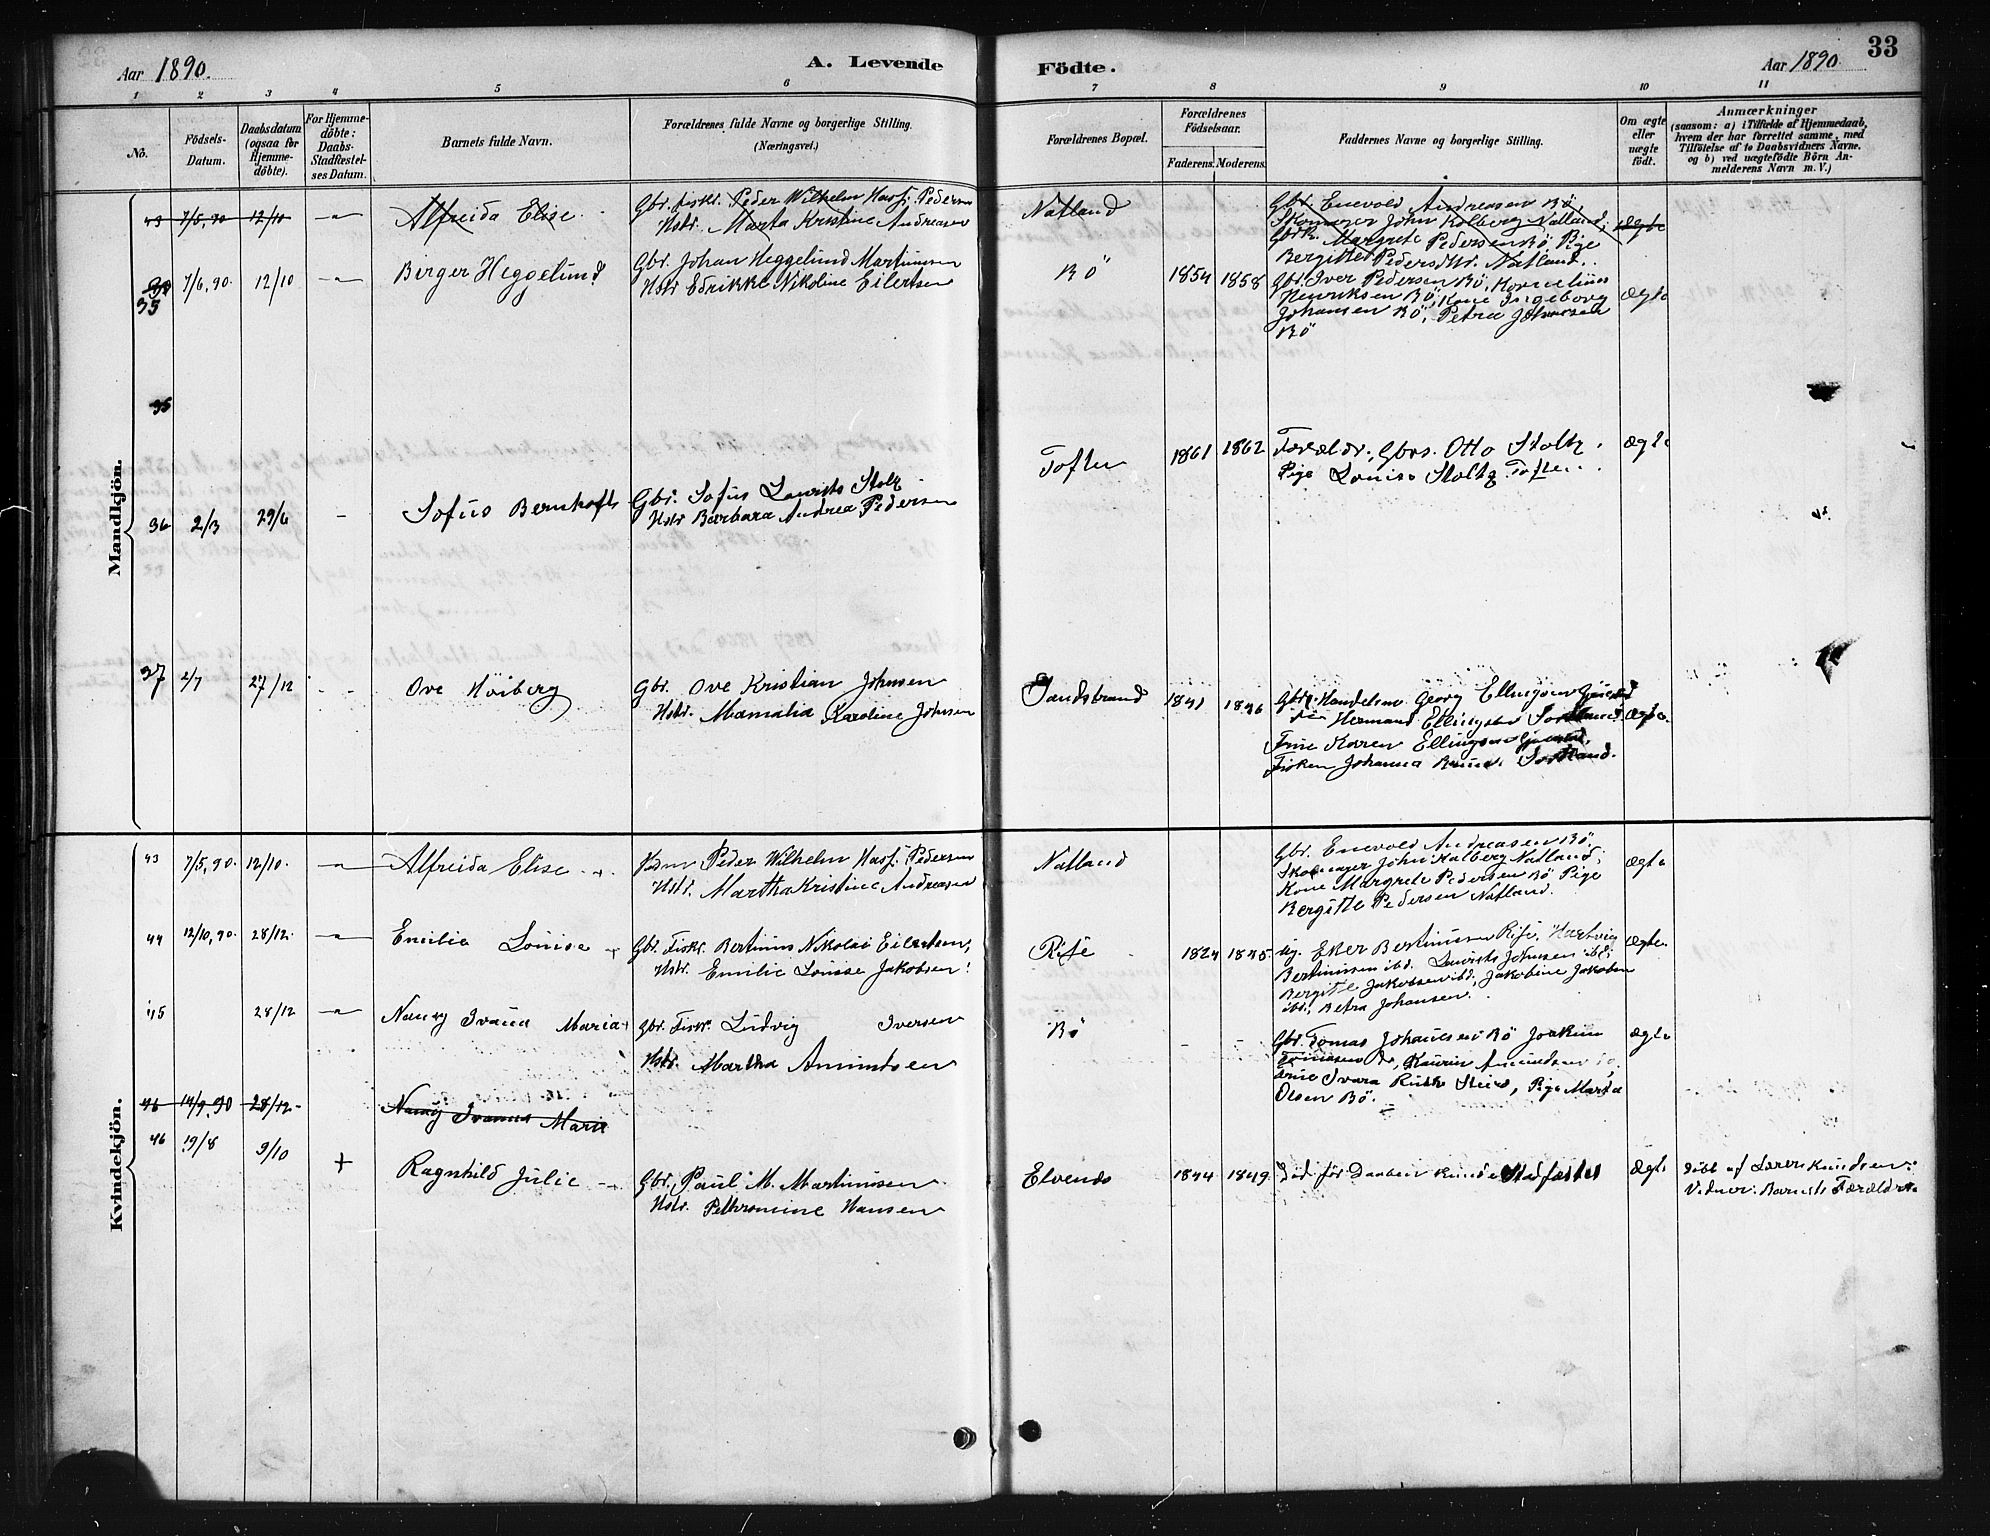 Aar 1890.
A. Levende
Födte.
Aar 1890.
33
1 2 3 4 5 6 7 8 9 10 11
No.
Födsels-
Datum.
Daabsdatum
(ogsaa for
Hjemme-
döbte).
For Hjemme-
döbte:
Daabs-
Stadfæstel-
ses Datum.
Barnets fulde Navn.
Forældrenes fulde Navne og borgerlige Stilling.
(Næringsvei.)
Forældrenes Bopæl.
Forældrenes
Födselsaar.
Faderens. Moderens.
Faddernes Navne og borgerlige Stilling.
Om ægte
eller
uægte
födt.
Anmærkninger
(saasom: a) i Tilfælde af Hjemmedaab,
hvem der har forrettet samme, med
Tilföielse af to Daabsvidners Navne.
og b) ved uægtefödte Börn An-
melderens Navn m. V.)
Mandkjön.
43 7/5,90 12/10 Alfreida Elise
Gbr. fiskr. Peder Wilhelm Hasf. Pedersen
Hstr. Marta Kristine Andreasen
Natland
Gbr. Enevold Andreasen Bö,
Skomager John Kolberg Natland,
Margrete Pedersen Bö Pige
Bergitte Pedersdtr. Natland.
Ægte
35 7/6,90. 12/10 Birger Heggelund
Gbr. Johan Heggelund Martinusen
Hstr Edrikke Nikoline Eilertsen
Bö 1854 1858
Gbr. Iver Pedersen Bö, Kornelius
Henriksen Bö, Kone Ingeborg
Johansen Bö, Petra Johansen
Bö
Ægte
35
36 2/3 29/6 - Sofus Bernhoft
Gbr. Sofus Lauritz Stolz
Hstr Barbara Andrea Pedersen
Toften 1861 1862
Forældr., Gbrs. Otto Stoltz.
Pige Louise Stoltz Toften.
Ægte
37 2/7 27/12 - - Ove Höiberg
Gbr. Ove Kristian Johnsen
Hstr. Mamalia Karoline Johnsen
Sandstrand 1841 1846
Gbr. Handelsm Georg Ellingsen
Hermand Ellingsen Sortland
Frue Karen Ellingsen
Fröken Johanna Sortland.
Ægte.
Kvindekjön.
43 7/5,90. 12/10. Alfreida Elise
Peder Wilhelm Hasf. Pedersen
Hstr. Martha Kristine Andreasen
Natland
Gbr. Enevold Andreasen Bö.
Skomager John Kalberg Natland,
Kone Margrete Pedersen Bö Pige
Bergitte Pedersen Natland.
Ægte
44 12/10,90. 28/12. Emilie Louise
Gbr. Fiskr. Bertinus Nikolai Eilertsen,
Hstr. Emilie Louise Jakobsen.
Rise 1824 1845.
Bertinusen Rise, Hartvig
Bertinussen ibd. Laurits Johnsen ibd,
Bergitte Jakobsen ibd, Jakobine Jakobsen
ibd, Petra Johansen.
Ægte.
45 28/12 Nancy Ivana Maria
Gbr. Fiskr. Ludvig Iversen
Hstr. Martha Amundsen
Bö - -
Gbr. Tomas Johannesen Bö Joakim
Tomasen do, Kaurin Amundsen
Frue Svara Ruth Pige Marta
Olsen Bö.
Ægte
46 14/9,90 28/12. Nancy Ivanna Marie
46 19/8 9/10 + Ragnhild Julie
Gbr. Paul M. Martinusen
Hstr. Pethromine Hansen
Elvenes 1844 1849.
Död för Daaben kunde Stadfæstes
Ægte
Döbt af Lærer Knudsen.
Vidner: Barnets Forældre